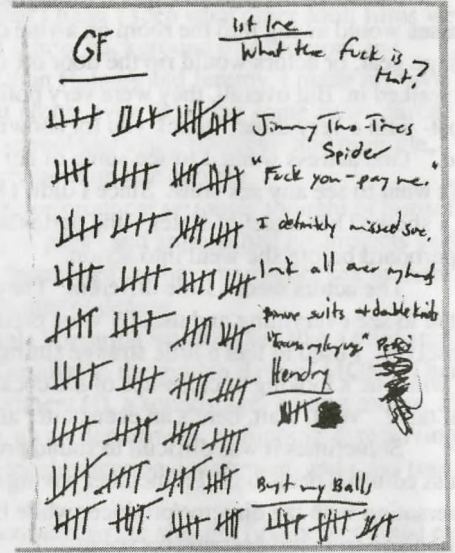 GF
1st line
What the fuck is
that?
Jimmy Two Times
Spider
"Fuck you - pay me."
I definitely missed some,
ink all over my hands
suits + double knits
Hendry
Bust my Balls